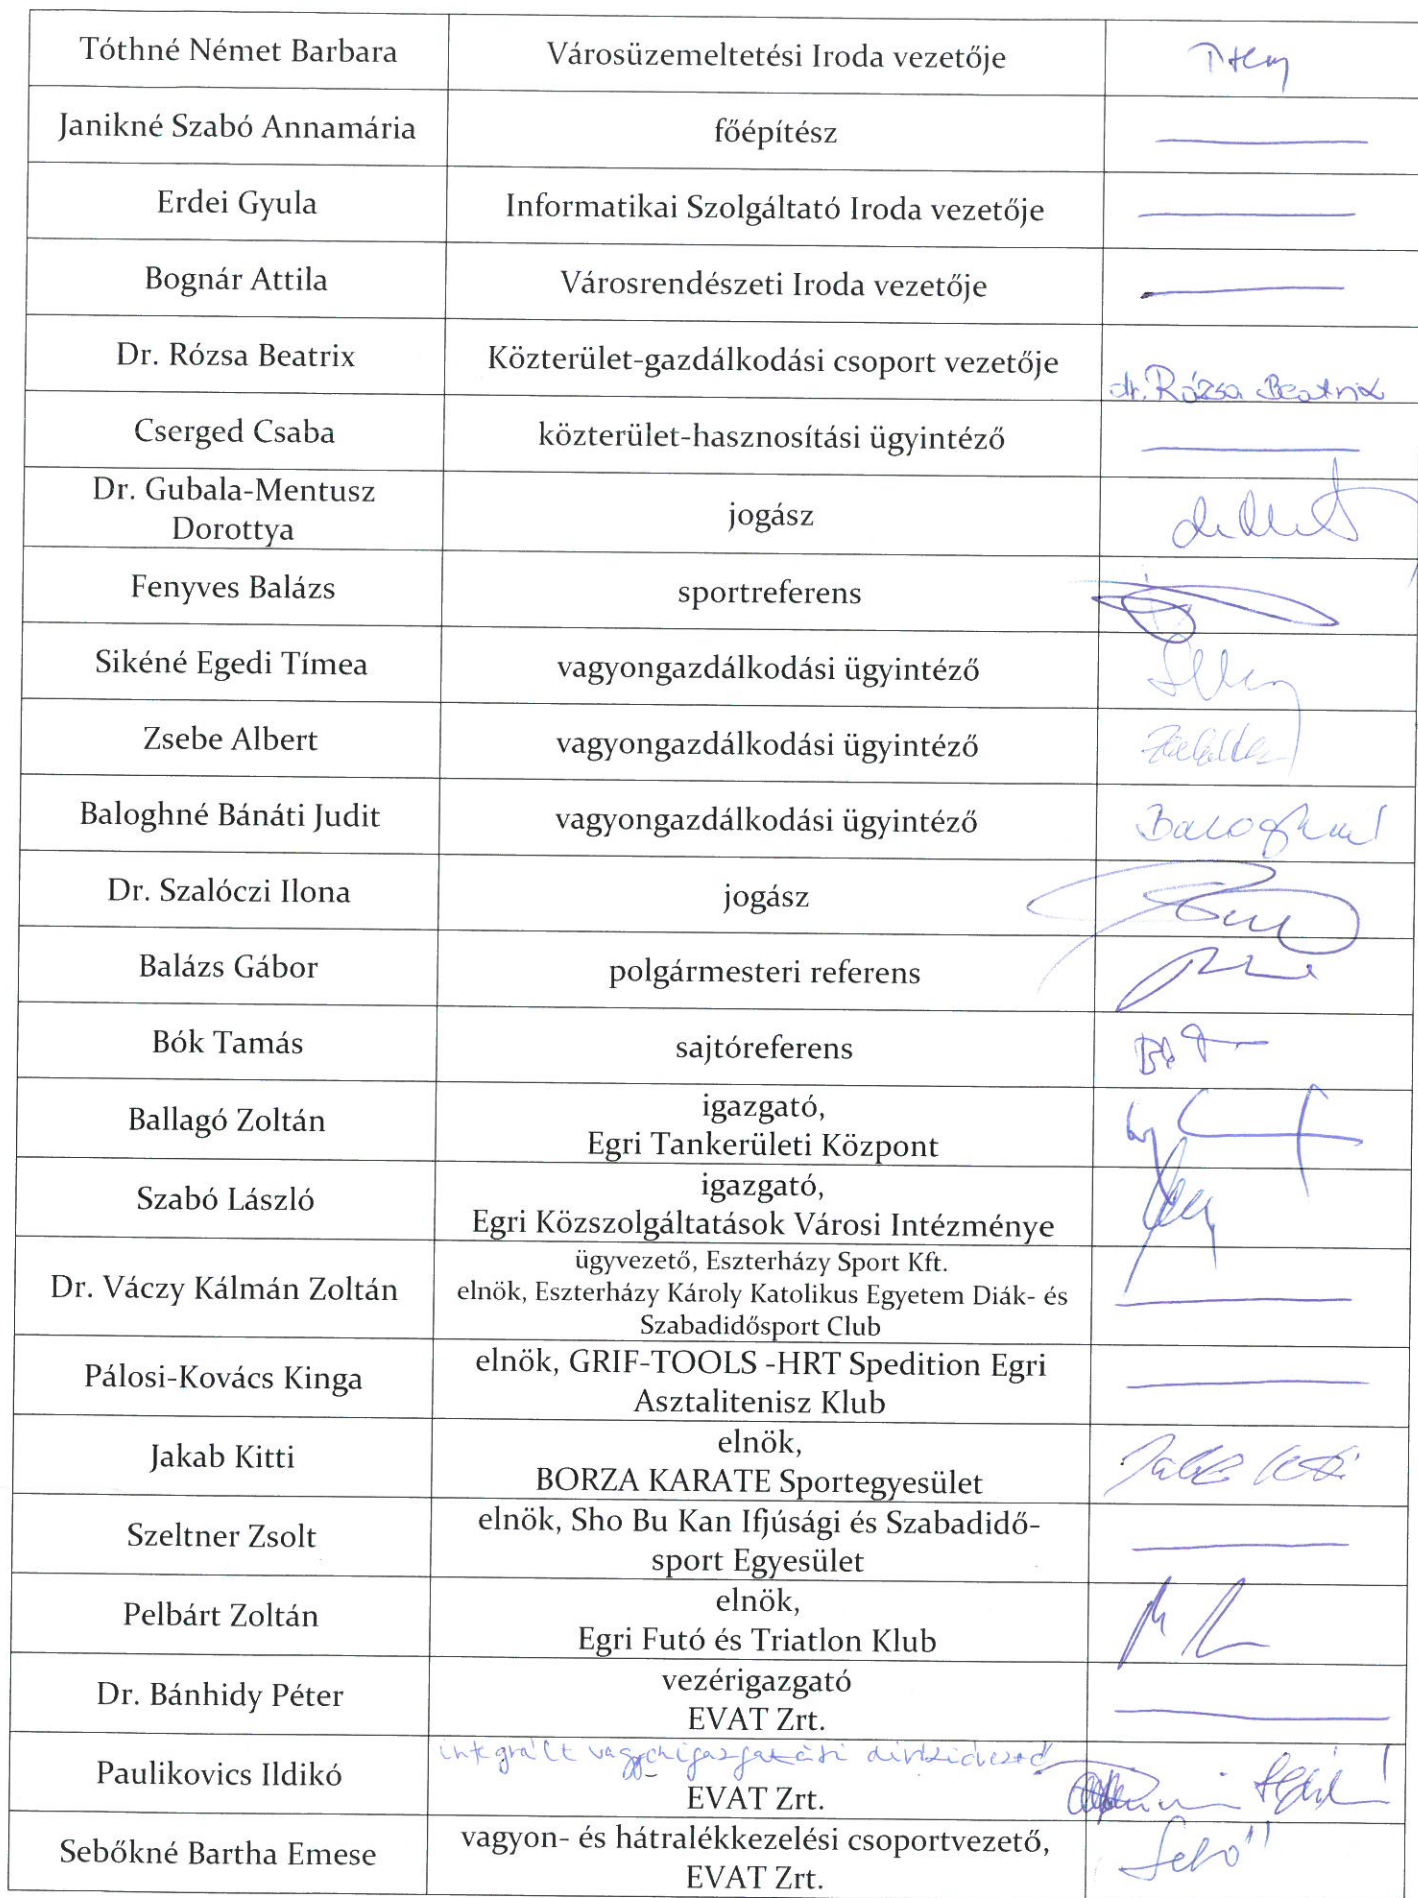 Tóthné Német Barbara Városüzemeltetési Iroda vezetője
Janikné Szabó Annamária főépítész
Erdei Gyula Informatikai Szolgáltató Iroda vezetője
Bognár Attila Városrendészeti Iroda vezetője
Dr. Rózsa Beatrix Közterület-gazdálkodási csoport vezetője dr. Rózsa Beatrix
Cserged Csaba közterület-hasznosítási ügyintéző
Dr. Gubala-Mentusz
Dorottya jogász
Fenyves Balázs sportreferens
Sikéné Egedi Tímea vagyongazdálkodási ügyintéző
Zsebe Albert vagyongazdálkodási ügyintéző
Baloghné Bánáti Judit vagyongazdálkodási ügyintéző Baloghné
Dr. Szalóczi Ilona jogász
Balázs Gábor polgármesteri referens
Bók Tamás sajtóreferens
Ballagó Zoltán igazgató,
Egri Tankerületi Központ
Szabó László igazgató,
Egri Közszolgáltatások Városi Intézménye
Dr. Váczy Kálmán Zoltán ügyvezető, Eszterházy Sport Kft.
elnök, Eszterházy Károly Katolikus Egyetem Diák- és
Szabadidősport Club
Pálosi-Kovács Kinga elnök, GRIF-TOOLS -HRT Spedition Egri
Asztalitenisz Klub
Jakab Kitti elnök, Jakab Kitti
BORZA KARATE Sportegyesület
Szeltner Zsolt elnök, Sho Bu Kan Ifjúsági és Szabadidő-
sport Egyesület
Pelbárt Zoltán elnök,
Egri Futó és Triatlon Klub
Dr. Bánhidy Péter vezérigazgató
EVAT Zrt.
Paulikovics Ildikó integrált vagyonigazgatási divízióvezető
EVAT Zrt.
Sebőkné Bartha Emese vagyon- és hátralékkezelési csoportvezető,
EVAT Zrt.